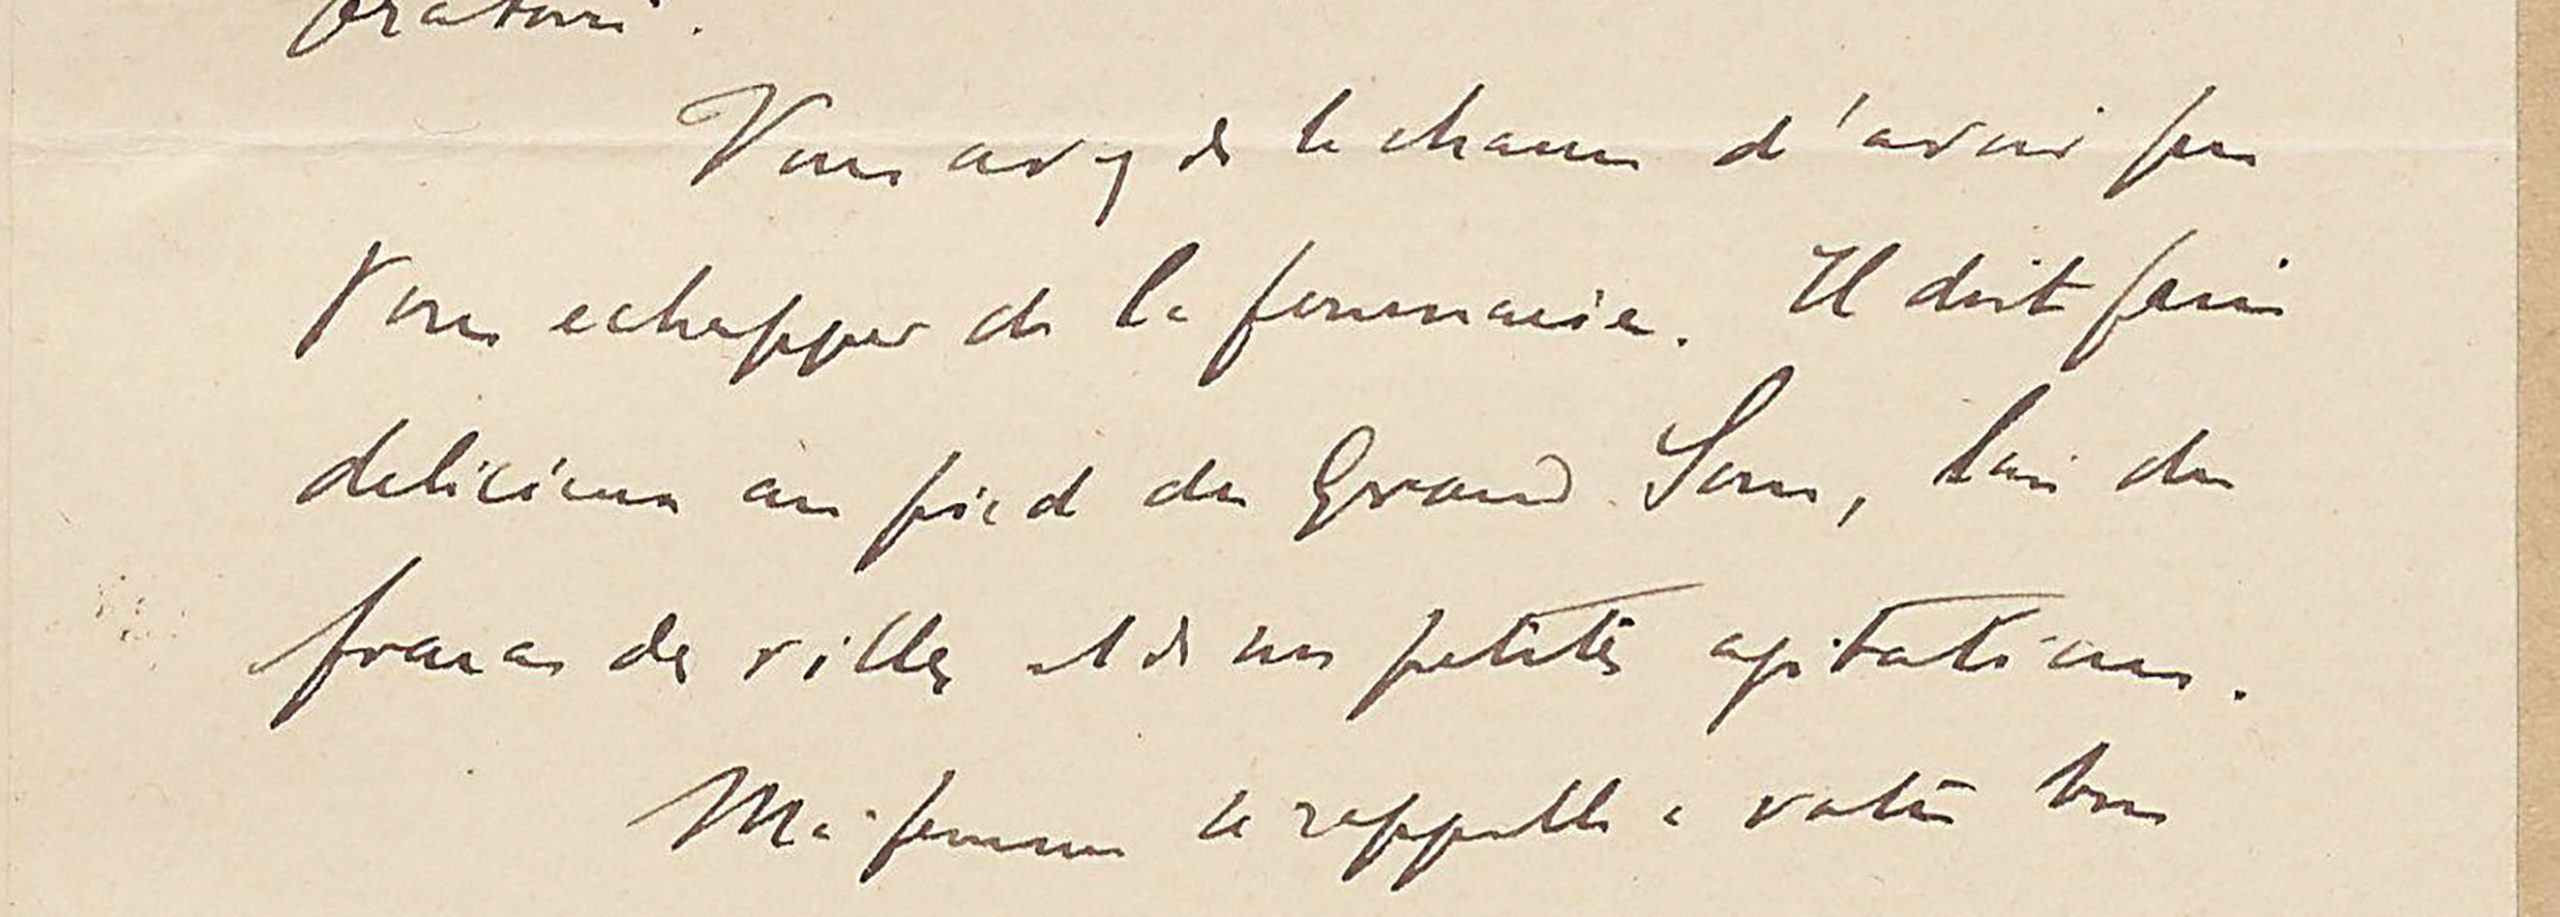 oratoire.
Vous avez de la chance d'avoir pu
vous echapper de la fournaise. Il doit faire
delicieux au pied du Grand Som, loin du
fracas des villes et de nos petites agitations.
Ma femme se rappelle a votre bon